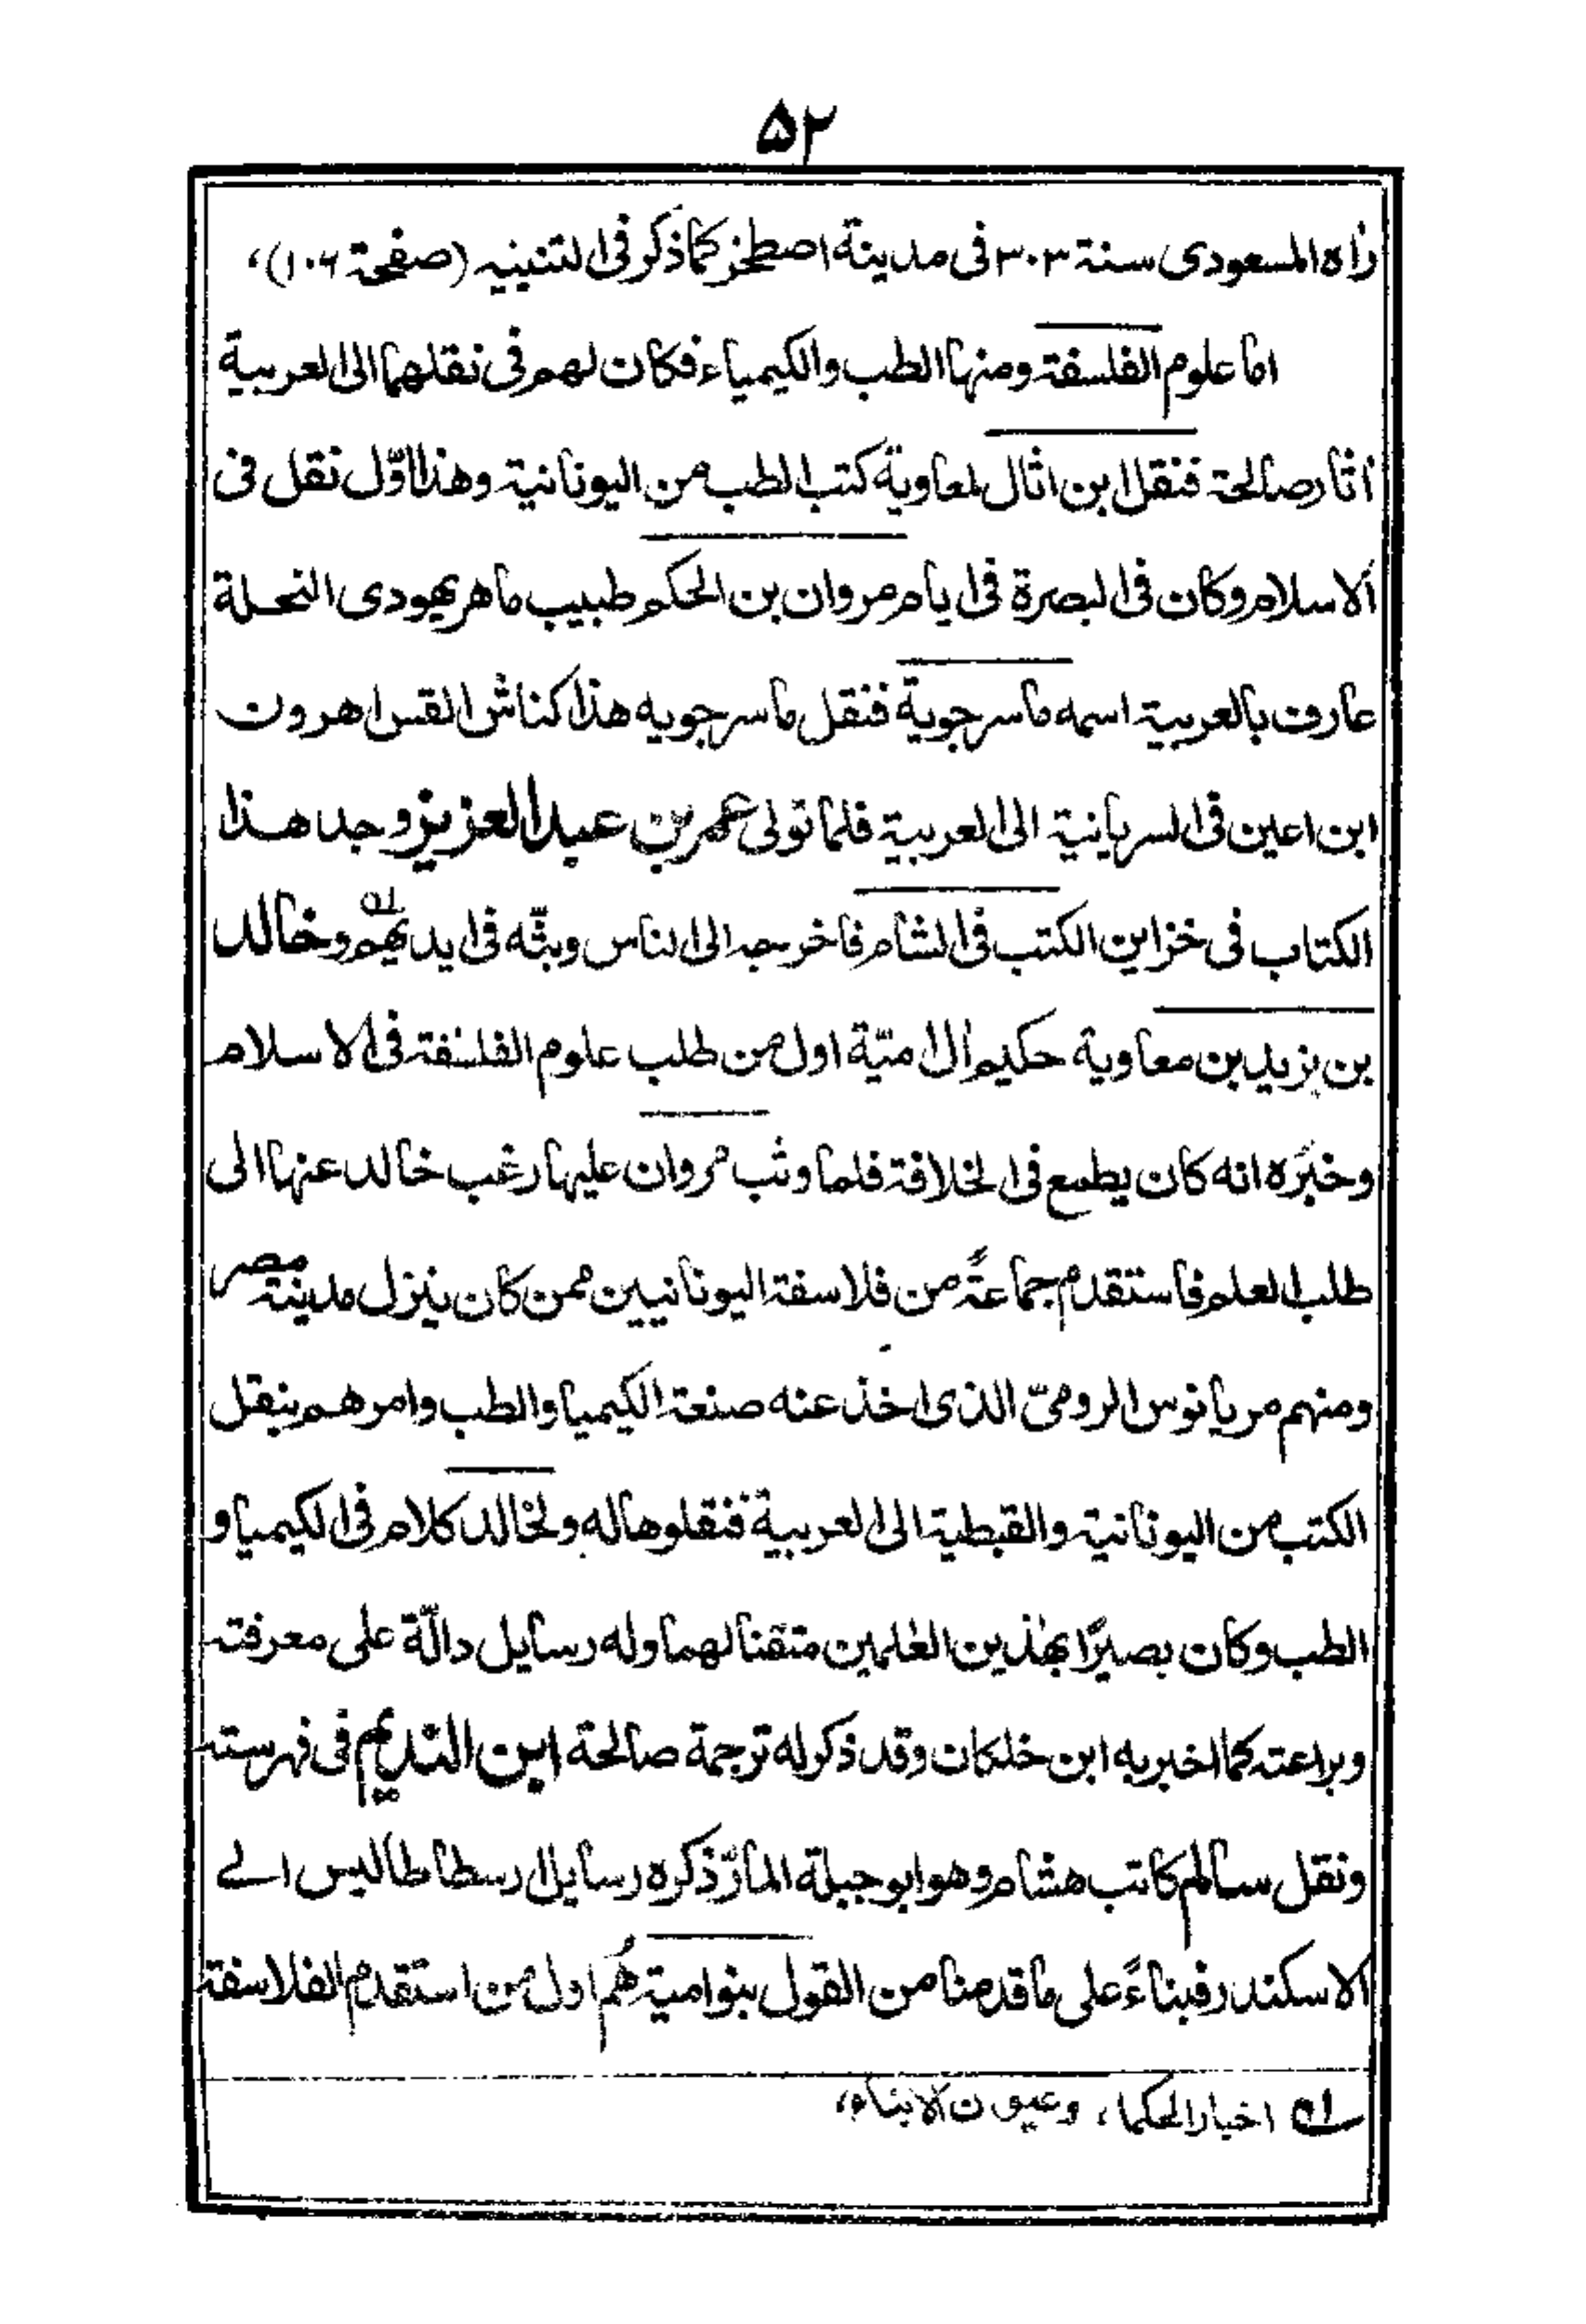 ٥٢
رأه المسعودى سنة ٣٠٣ فى مدينة اصطخر كما ذكر فى التنبيه (صفحة ١٠٦)،
اما علوم الفلسفة ومنها الطب والكيمياء فكان لهم فى نقلهما الى العربية
أثار صالحة فنقل ابن اثال لمعاوية كتب الطب من اليونانية وهذا اوّل نقل فى
الاسلام وكان فى البصرة فى ايام مروان بن الحكم طبيب ماهر يهودى النحلة
عارف بالعربية اسمه ماسرجوية فنقل ماسرجويه هذا كناش القس اهرون
ابن اعين فى السريانية الى العربية فلما تولى عمر بن عبد العزيز وجد هذا
الكتاب فى خزاين الكتب فى الشام فاخرجه الى الناس وبثّه فى ايديهم ؎١ وخالد
بن يزيد بن معاوية حكيم ال اميّة اول من طلب علوم الفلسفة فى الاسلام
وخبَره انه كان يطمع فى الخلافة فلما وثب مروان عليها رغب خالد عنها الى
طلب العلم فاستقدم جماعةً من فلاسفة اليونانيين ممن كان ينزل مدينة مصر
ومنهم مريانوس الرومىّ الذى اخذ عنه صنعة الكيميا والطب وامرهم بنقل
الكتب من اليونانية والقبطية الى العربية فنقلوها له ولخالد كلام فى الكيميا و
الطب وكان بصيرًا بهٰذين العلمين متقنا لهما وله رسايل دالّة على معرفته
وبراعته كما اخبر به ابن خلكان وقد ذكر له ترجمة صالحة ابن النديم فى فهرسته
ونقل سالم كاتب هشام وهو ابو جبلة المارّ ذكره رسايل ارسطاطاليس الى
الاسكندر فبناءً على ما قدمنا من القول بنو امية هُم اول من استقدم الفلاسفة
؎١ اخبار الحكما، وعيون الانباء،